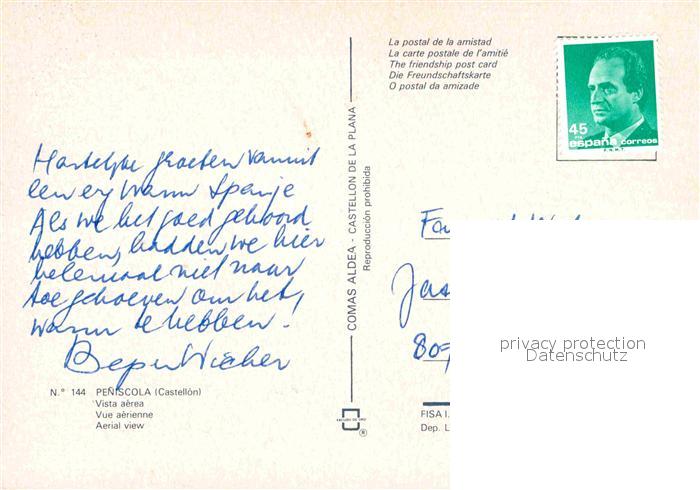 La postal de la amistad
La carte postale de l'amitié
The friendship post card
Die Freundschaftskarte
O postal da amizade
45
PTA
españa correos
F.N.M.T.
Hartelijke groeten vanuit
een erg warm Spanje
Als we het goed gehoord
hebben, hadden we hier
helemaal niet naar
toe gehoeven om het,
warm te hebben!
Bep en Wicher
N.° 144 PEÑISCOLA (Castellón)
Vista aérea
Vue aérienne
Aerial view
COMAS ALDEA - CASTELLON DE LA PLANA
Reproducción prohibida
Fa
Jas
809
privacy protection
Datenschutz
FISA I.
Dep. L
®